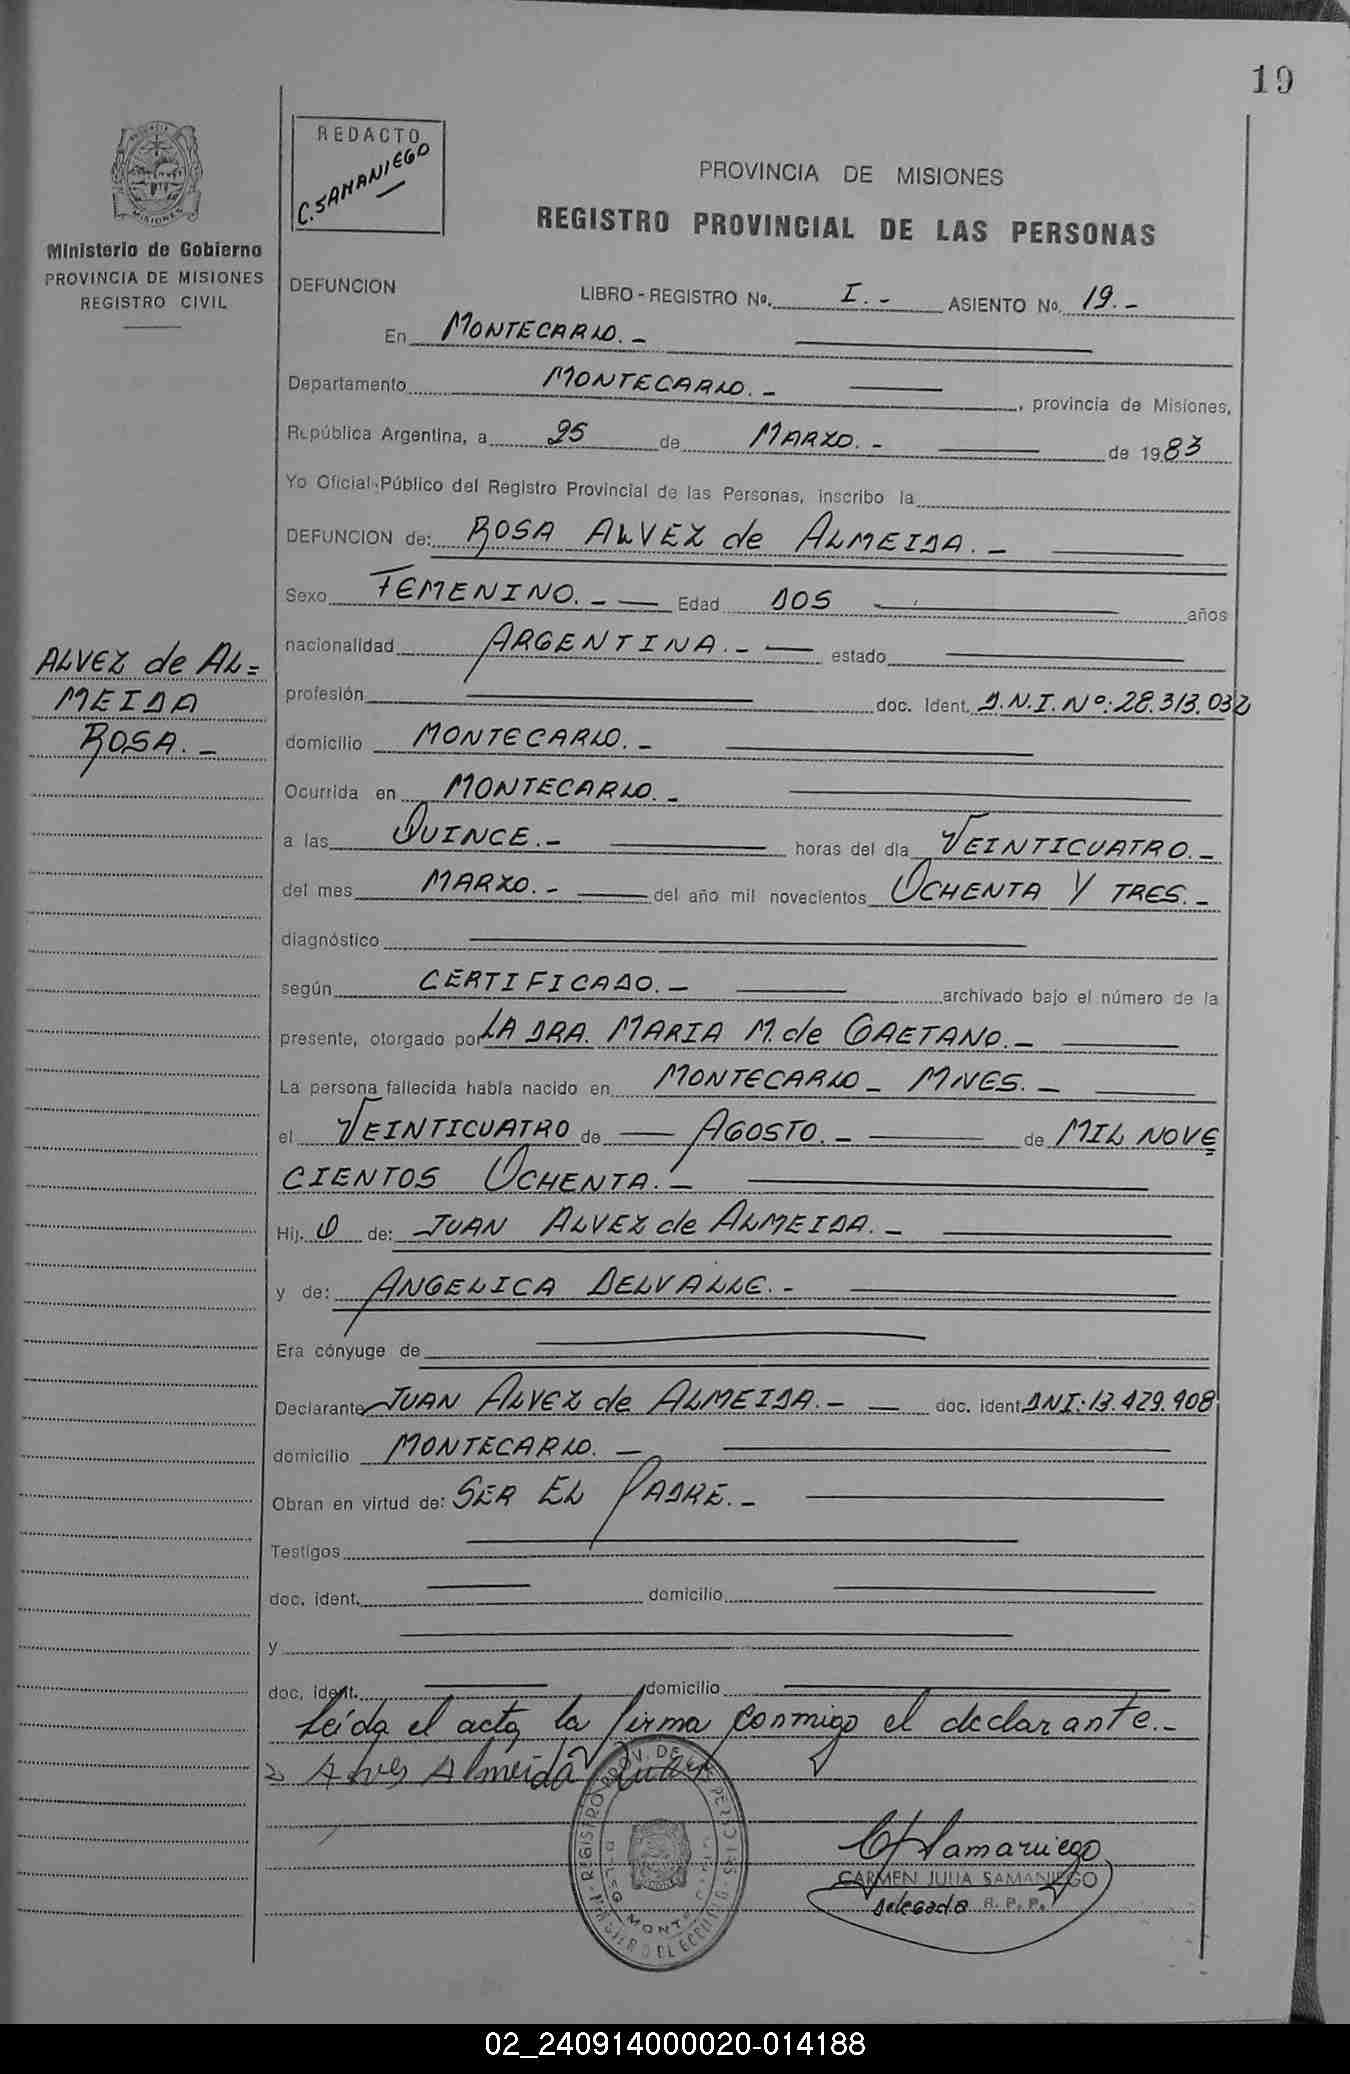 19
REDACTO
C. SAMANIEGO
MISIONES
Ministerio de Gobierno
PROVINCIA DE MISIONES
REGISTRO CIVIL
PROVINCIA DE MISIONES
REGISTRO PROVINCIAL DE LAS PERSONAS
DEFUNCION LIBRO-REGISTRO Nº. I.- ASIENTO Nº. 19.-
En MONTECARLO.-
Departamento MONTECARLO.- , provincia de Misiones,
República Argentina, a 25 de MARZO.- de 1983
Yo Oficial Público del Registro Provincial de las Personas, inscribo la
DEFUNCION de: ROSA ALVEZ de ALMEIDA.-
Sexo FEMENINO.- Edad DOS años
nacionalidad ARGENTINA.- estado
profesión doc. Ident. D.N.I. Nº: 28.313.032
domicilio MONTECARLO.-
Ocurrida en MONTECARLO.-
a las QUINCE.- horas del día VEINTICUATRO.-
del mes MARZO.- del año mil novecientos OCHENTA Y TRES.-
diagnóstico
según CERTIFICADO.- archivado bajo el número de la
presente, otorgado por LA DRA. MARIA M. de GAETANO.-
La persona fallecida había nacido en MONTECARLO - MNES.-
el VEINTICUATRO de AGOSTO.- de MIL NOVE
CIENTOS OCHENTA.-
Hij. a de: JUAN ALVEZ de ALMEIDA.-
y de: ANGELICA DELVALLE.-
Era cónyuge de
Declarante JUAN ALVEZ de ALMEIDA.- doc. ident. DNI: 13.429.908
domicilio MONTECARLO.-
Obran en virtud de: SER EL PADRE.-
Testigos
doc. ident. domicilio
y
doc. ident. domicilio
Leída el acta, la firma conmigo el declarante.-
Alves Almeida
C Samaniego
CARMEN JULIA SAMANIEGO
Delegada R. P. P.
ALVEZ de AL=
MEIDA
ROSA.-
02_240914000020-014188